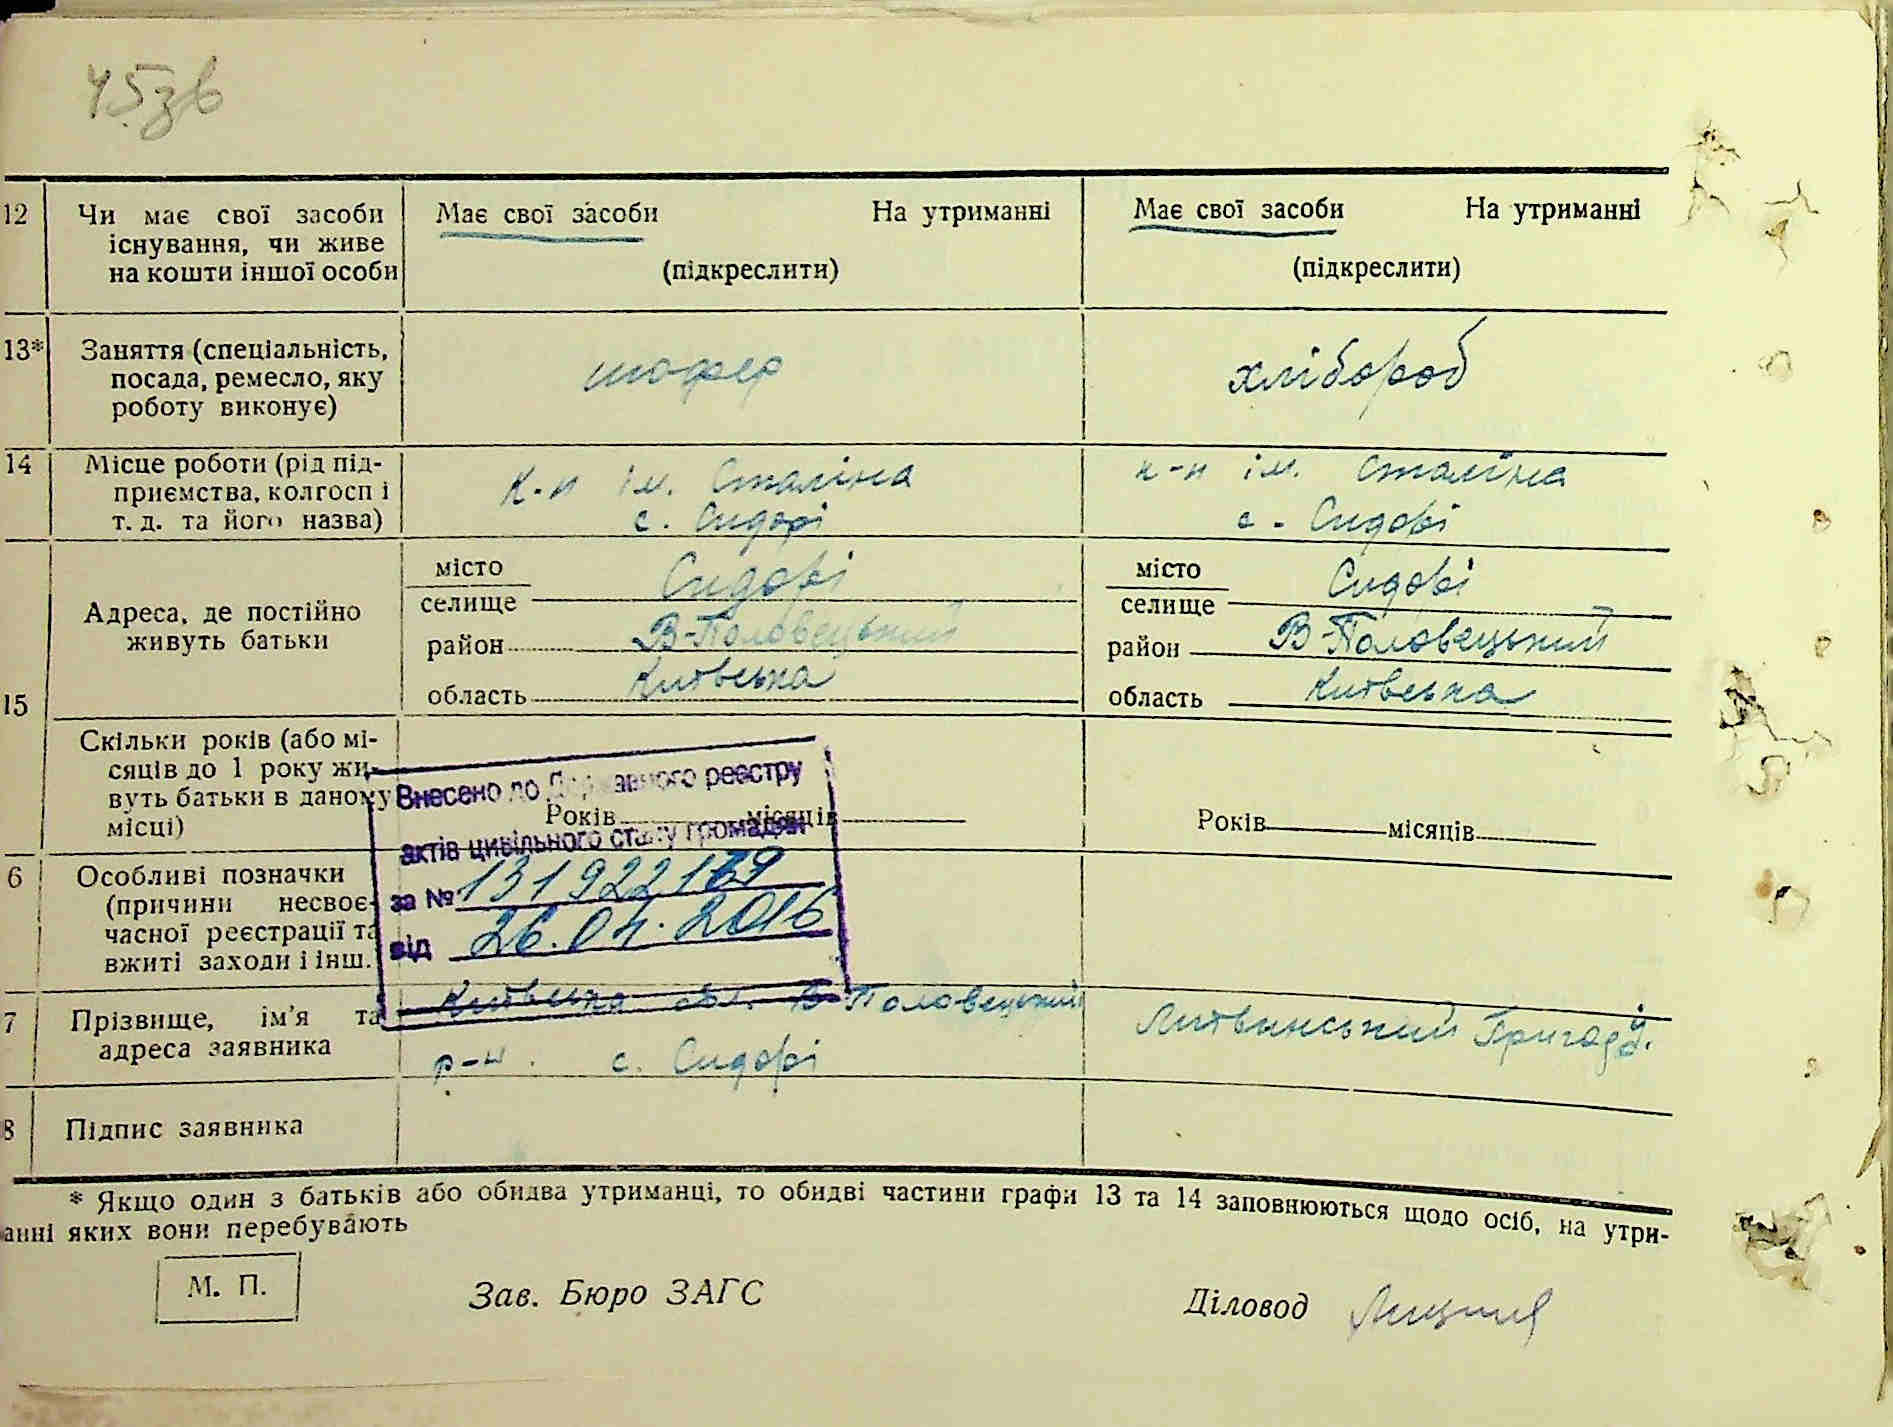 45зв
12 Чи має свої засоби Має свої засоби На утриманні Має свої засоби На утриманні
існування, чи живе
на кошти іншої особи (підкреслити) (підкреслити)
13* Заняття (спеціальність,
посада, ремесло, яку шофер хлібороб
роботу виконує)
14 Місце роботи (рід під-
приємства, колгосп і к-п ім. Сталіна к-п ім. Сталіна
т. д. та його назва) с. Сидорі с. Сидорі
15 Адреса, де постійно
живуть батьки
місто Сидорі місто Сидорі
селище селище
район В-Половецький район В-Половецький
область Київська область Київська
Скільки років (або мі-
сяців до 1 року жи-
вуть батьки в даному
місці) Років місяців Років місяців
Внесено до Державного реєстру
актів цивільного стану громадян
за № 131922179
від 26.04.2016
6 Особливі позначки
(причини несвоє-
часної реєстрації та
вжиті заходи і інш.
7 Прізвище, ім'я та Київська обл. В-Половецький Литвинський
адреса заявника р-н. с. Сидорі
8 Підпис заявника
* Якщо один з батьків або обидва утриманці, то обидві частини графи 13 та 14 заповнюються щодо осіб, на утри-
анні яких вони перебувають
М. П. Зав. Бюро ЗАГС Діловод